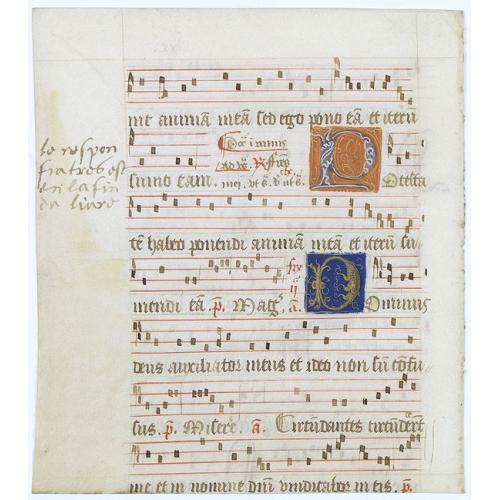 me animā meā sed ego pono eā et iterū
Dn̄ica in ramis
sumo eam.
Potesta
tē habeo ponendi animam meā et iterū su
mendi eā. p̄. Maḡ. a. Dominus
deus auxiliator meus et ideo non sū cōfu
sus. p̄. Misere. a. Circūdantes circūdeꝛt
me et in nomine dn̄i vindicabor in eis. p̄.
le respon
est
en la fin
du livre